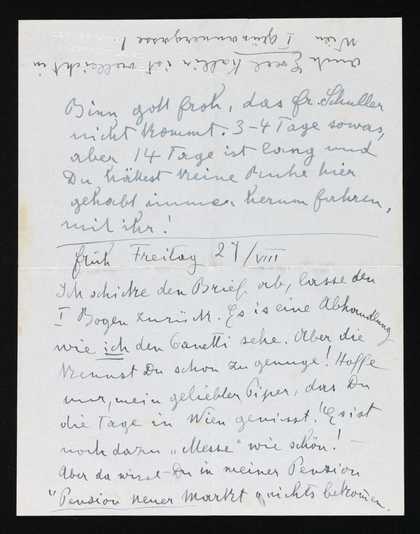 auch Excel. Kallir ist vielleicht in
Wien I Grünangergasse!
Binn gott froh, das Fr. Schuller
nicht kommt. 3-4 Tage sowas,
aber 14 Tage ist lang und
Du hättest keine Ruhe hier
gehabt immer herum fahren,
mit ihr!
früh Freitag 27/VIII
Ich schicke den Brief ab, lasse den
I Bogen zurück. Es is eine Abhandlung
wie ich den Canetti sehe. Aber die
kennst Du schon zu genuge! Hoffe
nur, mein geliebter Piper, das Du
die Tage in Wien geniesst! Es ist
noch dazu „Messe" wie schön! –
Aber da wirst Du in meiner Pension
"Pension neuer Markt" nichts bekommen.